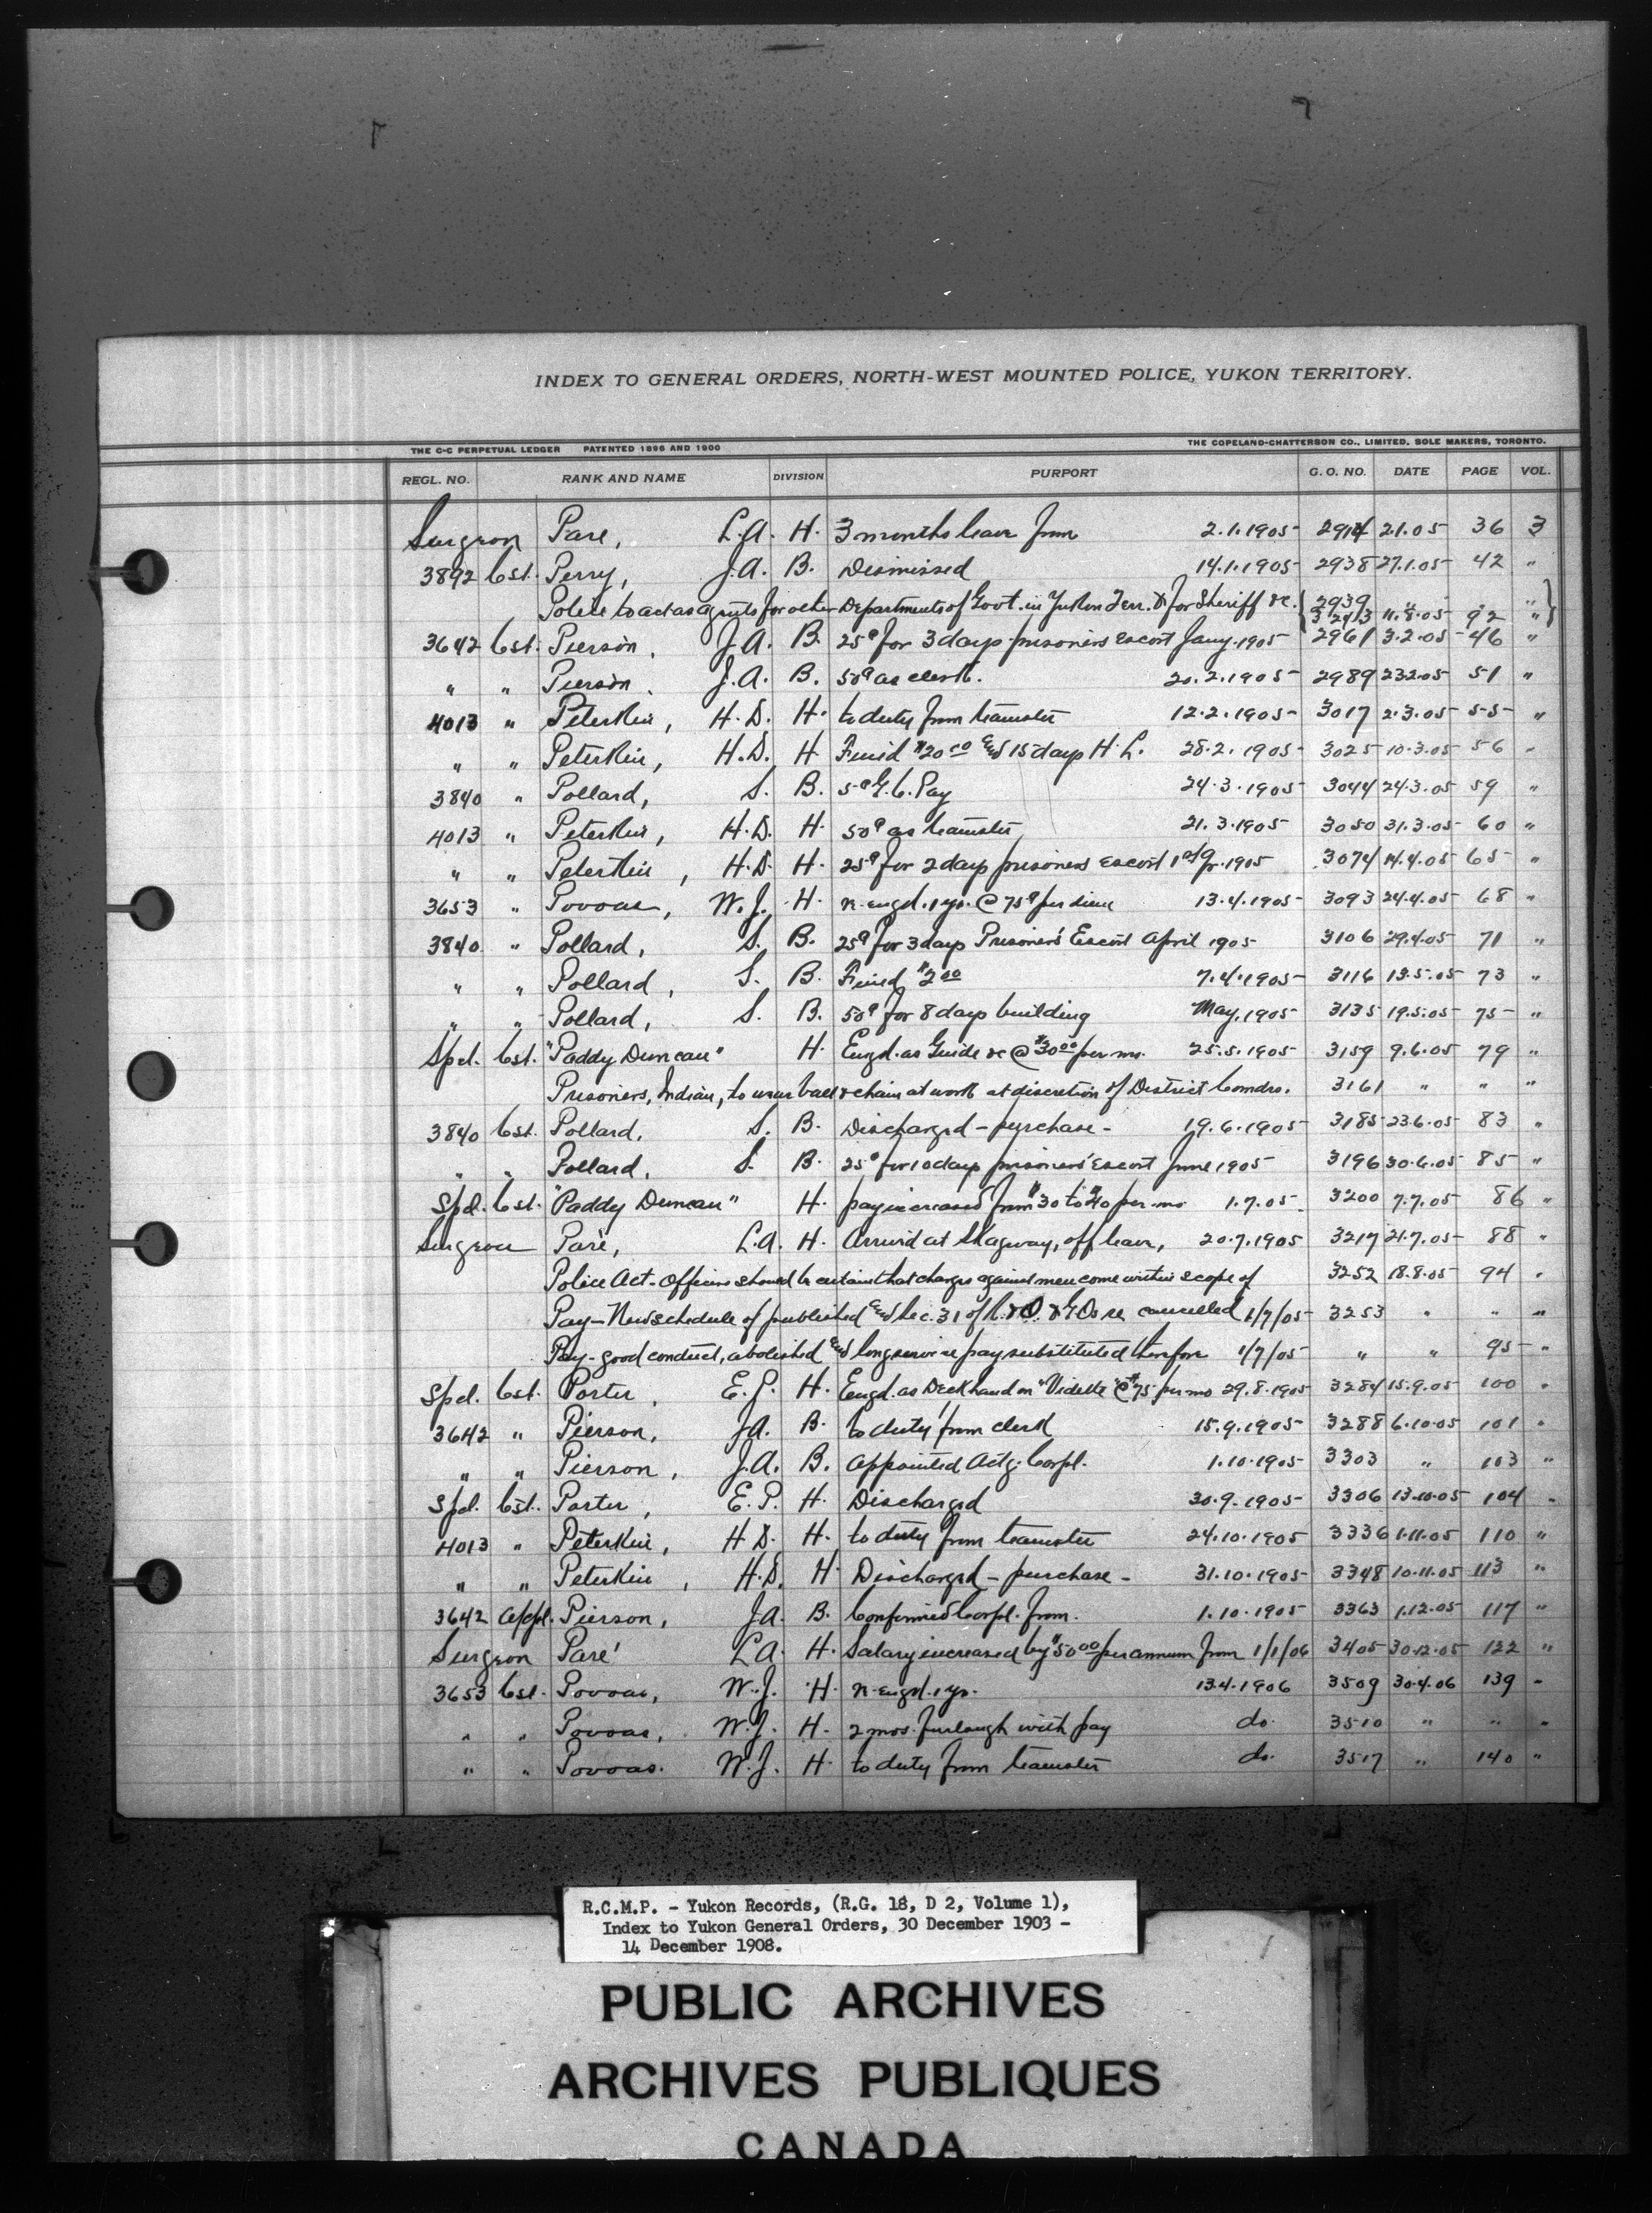 INDEX TO GENERAL ORDERS, NORTH-WEST MOUNTED POLICE, YUKON TERRITORY.
THE C-C PERPETUAL LEDGER PATENTED 1896 AND 1900 THE COPELAND-CHATTERSON CO., LIMITED, SOLE MAKERS, TORONTO.
REGL. NO. RANK AND NAME DIVISION PURPORT G. O. NO. DATE PAGE VOL.
Surgeon Pare, L.A. H. 3 months leave from 2.1.1905 2914 2.1.05 36 3
3892 Cst. Perry, J.A. B. Dismissed 14.1.1905 2938 27.1.05 42 "
Police to act as agents for other Departments of Govt. in Yukon Terr. & for Sheriff &c. { 2939 " " " }
3243 11.8.05 92 "
3642 Cst. Pierson, J.A. B. 25¢ for 3 days prisoners escort Jany. 1905 2961 3.2.05 46 "
" " Pierson, J.A. B. 50¢ as clerk. 20.2.1905 2989 23.2.05 51 "
4013 " Peterkin, H.D. H. to duty from teamster 12.2.1905 3017 2.3.05 55 "
" " Peterkin, H.D. H Fined $20.00 and 15 days H.L. 28.2.1905 3025 10.3.05 56 "
3840 " Pollard, S. B. 5¢ G.C. Pay 24.3.1905 3044 24.3.05 59 "
4013 " Peterkin, H.D. H. 50¢ as teamster 21.3.1905 3050 31.3.05 60 "
" " Peterkin, H.D. H. 25¢ for 2 days prisoners escort 1905 3074 14.4.05 65 "
3653 " Povoas, W.J. H. re-engd. 1 yr. @ 75¢ per diem 13.4.1905 3093 24.4.05 68 "
3840 " Pollard, S. B. 25¢ for 3 days Prisoners' Escort April 1905 3106 29.4.05 71 "
" " Pollard, S. B. Fined $2.00 7.4.1905 3116 13.5.05 73 "
" " Pollard, S. B. 50¢ for 8 days building May, 1905 3135 19.5.05 75 "
Spcl. Cst. "Paddy Duncan" H. Engd. as Guide &c @ $30.00 per mo. 25.5.1905 3159 9.6.05 79 "
Prisoners, Indian, to wear ball & chain at work at discretion of District Comdrs. 3161 " " "
3840 Cst. Pollard, S. B. Discharged - purchase - 19.6.1905 3185 23.6.05 83 "
" " Pollard, S. B. 25¢ for 10 days prisoners' Escort June 1905 3196 30.6.05 85 "
Spcl. Cst. "Paddy Duncan" H. pay increased from $30 to $40 per mo 1.7.05 3200 7.7.05 86 "
Surgeon Paré, L.A. H. Arrived at Skagway, off leave, 20.7.1905 3217 21.7.05 88 "
Police Act - Officers should be certain that charges against men come within scope of 3252 18.8.05 94 "
Pay - New schedule of published and Sec. 31 of R. & O. & G.Os re cancelled 1/7/05 3253 " " "
Pay - good conduct, abolished and long service pay substituted therefore 1/7/05 " " 95 "
Spcl. Cst. Porter, E.P. H. Engd. as Deckhand on "Vidette" @ $75 per mo 29.8.1905 3284 15.9.05 100 "
3642 " Pierson, J.A. B. to duty from clerk 15.9.1905 3288 6.10.05 101 "
" " Pierson, J.A. B. Appointed Actg. Corpl. 1.10.1905 3303 " 103 "
Spcl. Cst. Porter, E.P. H. Discharged 30.9.1905 3306 13.10.05 104 "
4013 " Peterkin, H.D. H. to duty from teamster 24.10.1905 3336 1.11.05 110 "
" " Peterkin, H.D. H. Discharged - purchase - 31.10.1905 3348 10.11.05 113 "
3642 Pierson, J.A. B. Confirmed Corpl. from. 1.10.1905 3363 1.12.05 117 "
Surgeon Paré L.A. H. Salary increased by $50.00 per annum from 1/1/06 3405 30.12.05 122 "
3653 Cst. Povoas, W.J. H. re-engd. 1 yr. 13.4.1906 3509 30.4.06 139 "
" " Povoas, W.J. H. 2 mos. furlough with pay do. 3510 " " "
" " Povoas. W.J. H. to duty from teamster do. 3517 " 140 "
R.C.M.P. - Yukon Records, (R.G. 18, D 2, Volume 1),
Index to Yukon General Orders, 30 December 1903 -
14 December 1908.
PUBLIC ARCHIVES
ARCHIVES PUBLIQUES
CANADA